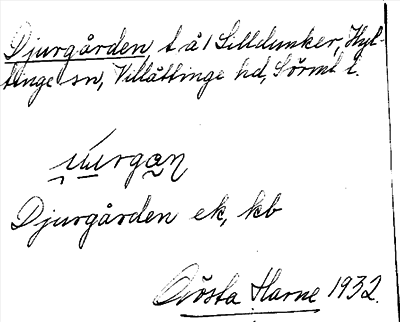 Djurgården t å 1 Lilldunker, Hyl-
tinge sn, Villåttinge hd, Sörml l.
Djurgården ek, kb
Gösta Harne 1932.